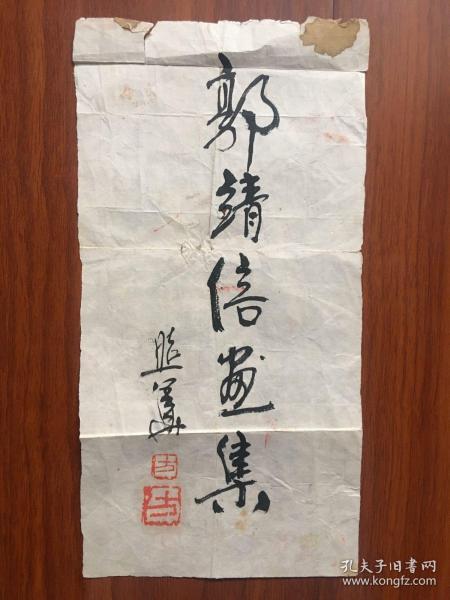 郭靖倍画集
孔夫子旧书网
www.kongfz.com